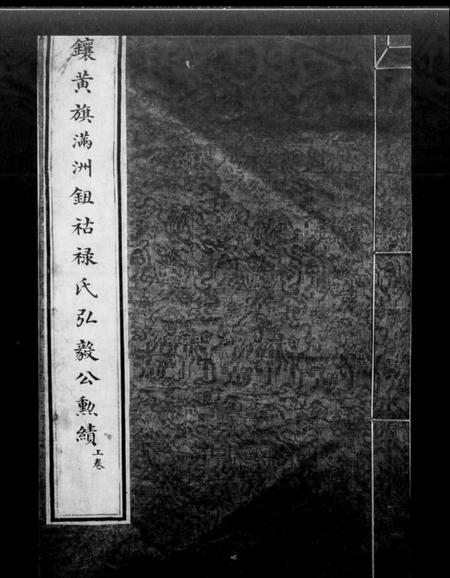 鑲黃旗滿洲鈕祜祿氏弘毅公勳績上卷